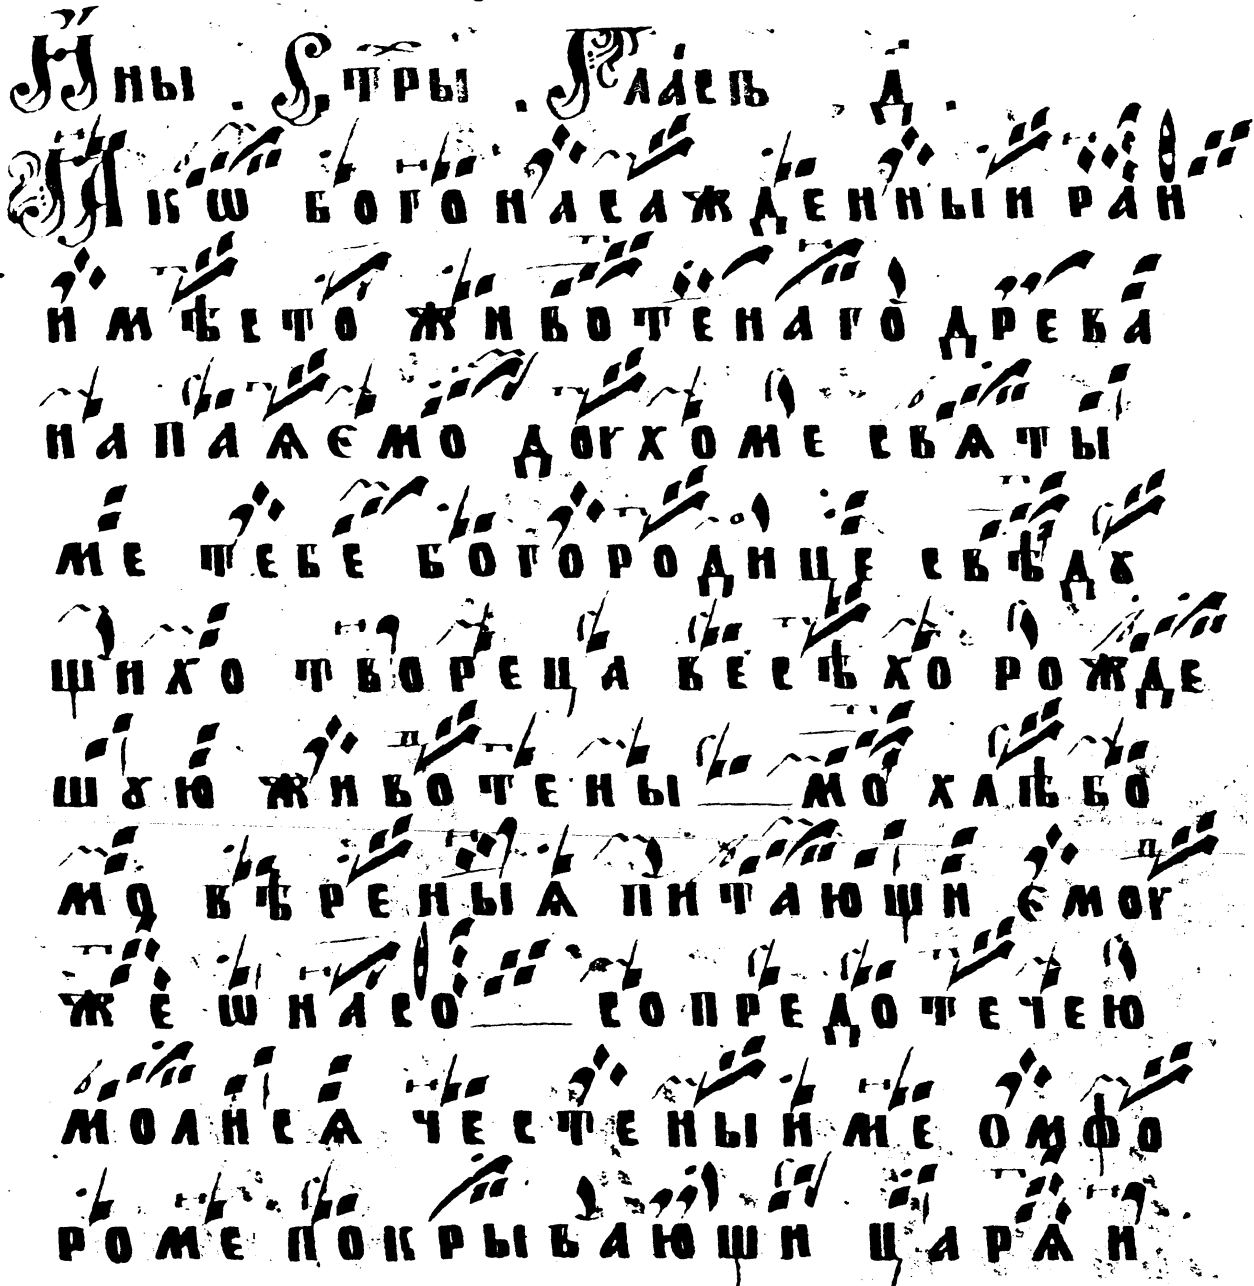 Й ны . Стры . Гласъ . д .
Ꙗкѡ богонасажденныи рай
и мѣсто животенаго древа
напаѧемо доухоме свѧты
ме тебе богородице свѣдꙋ
щихо твореца весѣхо рожде
шꙋю животены мо хлѣбо
мо вѣреныѧ питающи емоу
же ѡ насо со предотечею
молисѧ честеныиме омфо
роме покрывающи царѧ и